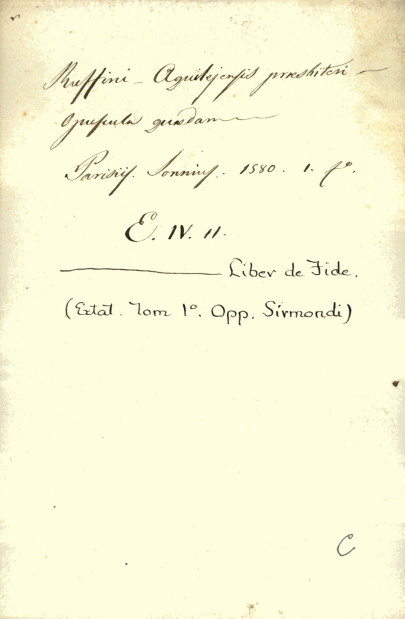 Ruffini - Aquilejensis presbiteri -
Opuscula quædam
Parisiis. Sonnius. 1580. 1. fº.
E. IV. 11.
Liber de Fide.
(Extat. Tom 1º. Opp. Sirmondi)
C